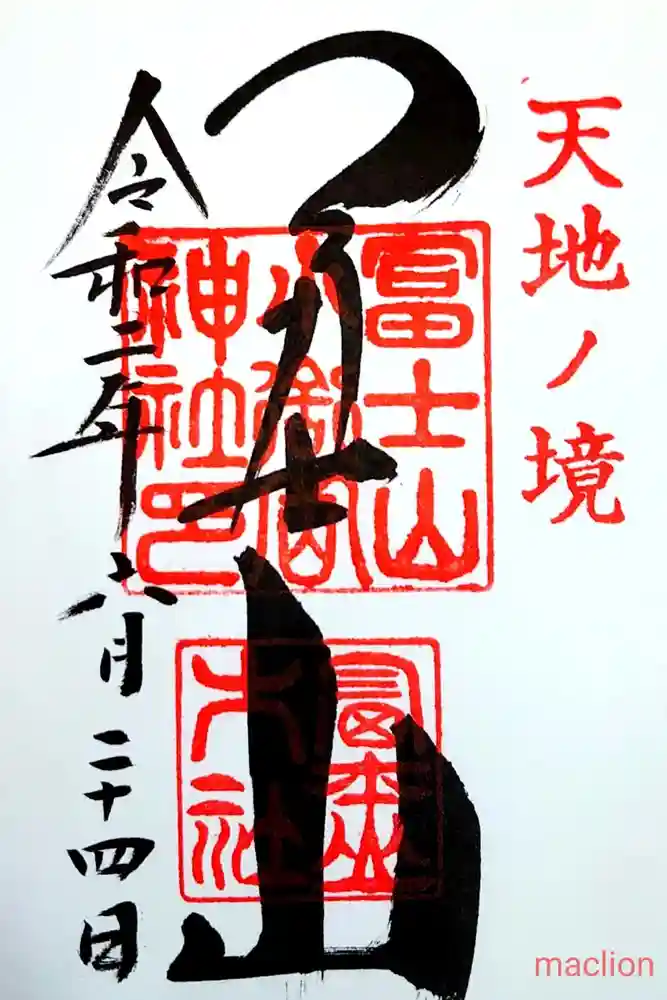 天地ノ境
冨士山
富士山
小御
神社印
大社
令和二年
六月
二十四日
maclion